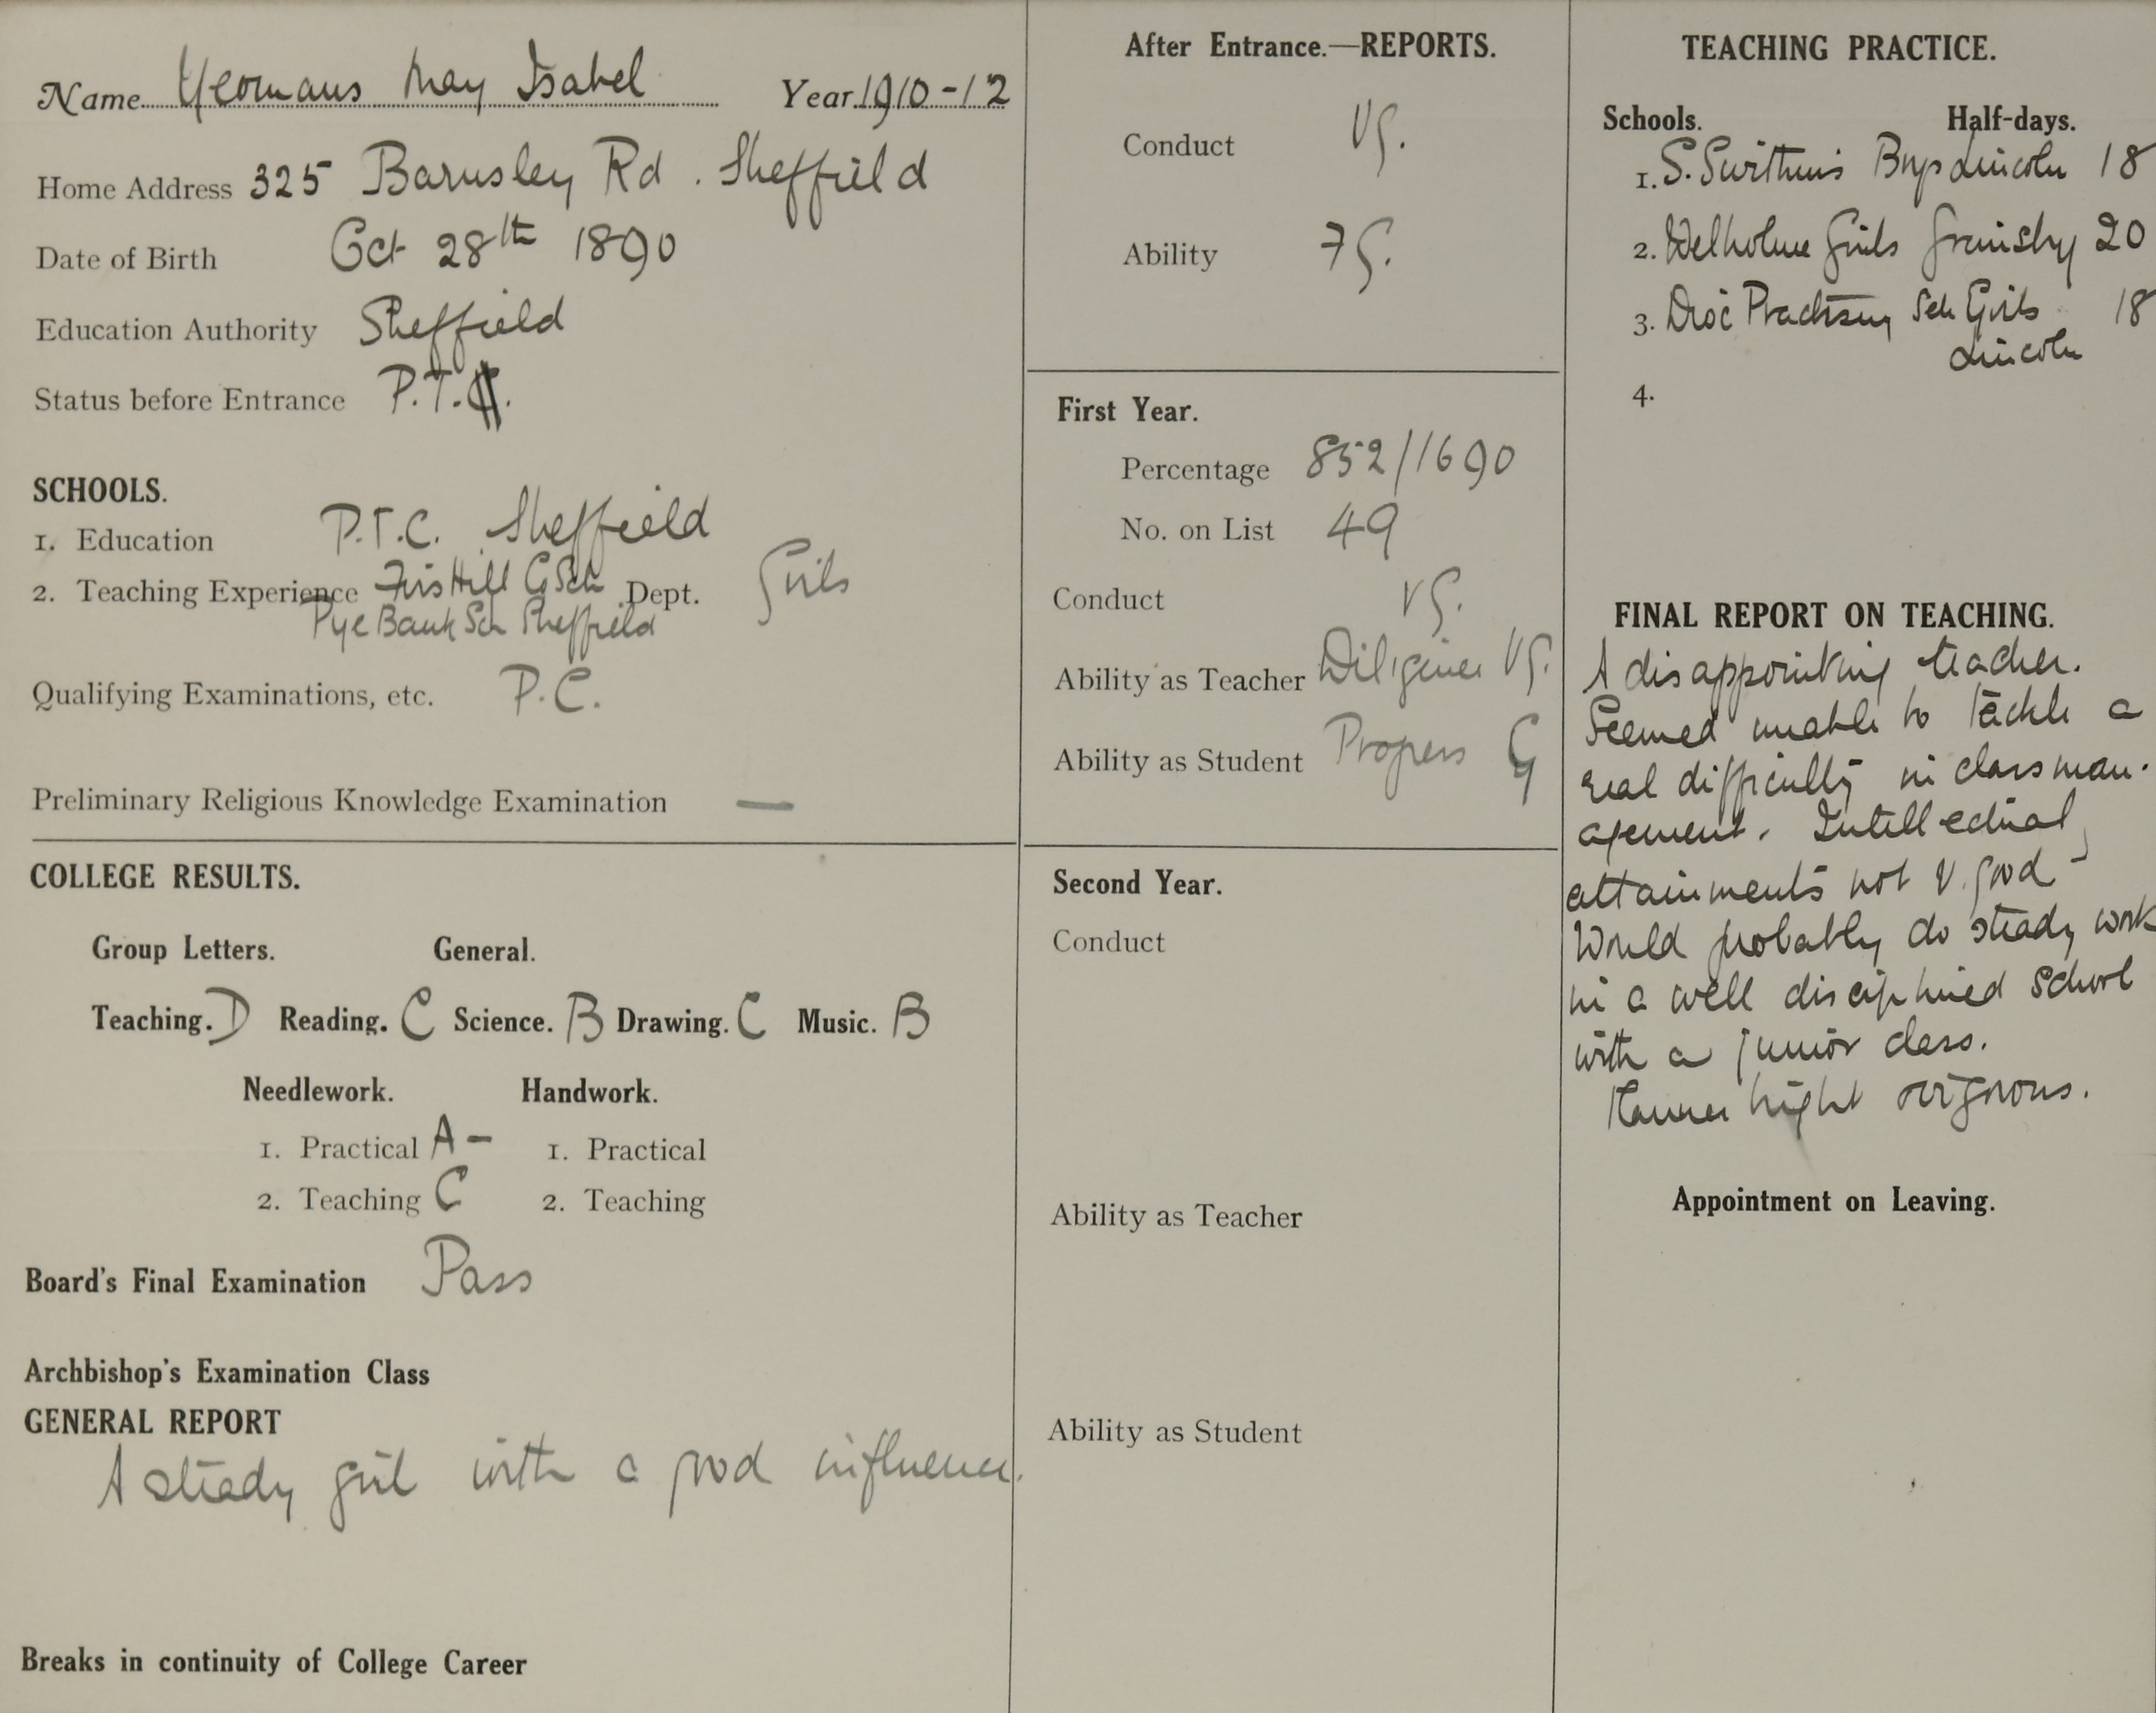 Name Yeomans May Isabel Year 1910-12
Home Address 325 Barnsley Rd. Sheffield
Date of Birth Oct 28th 1890
Education Authority Sheffield
Status before Entrance P.T.
SCHOOLS.
1. Education P.T.C. Sheffield
2. Teaching Experience Firs Hill G Sch Dept. Girls
Pye Bank Sch Sheffield
Qualifying Examinations, etc. P.C.
Preliminary Religious Knowledge Examination —
COLLEGE RESULTS.
Group Letters. General.
Teaching. D Reading. C Science. B Drawing. C Music. B
Needlework. Handwork.
1. Practical A- 1. Practical
2. Teaching C 2. Teaching
Board's Final Examination Pass
Archbishop's Examination Class
GENERAL REPORT
A steady girl with a good influence.
Breaks in continuity of College Career
After Entrance.—REPORTS.
Conduct VG.
Ability FG.
First Year.
Percentage 852/1690
No. on List 49
Conduct VG.
Ability as Teacher Diligence VG.
Ability as Student Progress G
Second Year.
Conduct
Ability as Teacher
Ability as Student
TEACHING PRACTICE.
Schools. Half-days.
1. S. Swithins Boys Lincoln 18
2. Welholme Girls Grimsby 20
3. Dioc Practising Sch Girls 18
Lincoln
4.
FINAL REPORT ON TEACHING.
A disappointing teacher.
Seemed unable to tackle a
real difficulty in class man-
agement. Intellectual
attainments not v. good -
Would probably do steady work
in a well disciplined school
with a junior class.
Manner bright vigorous.
Appointment on Leaving.